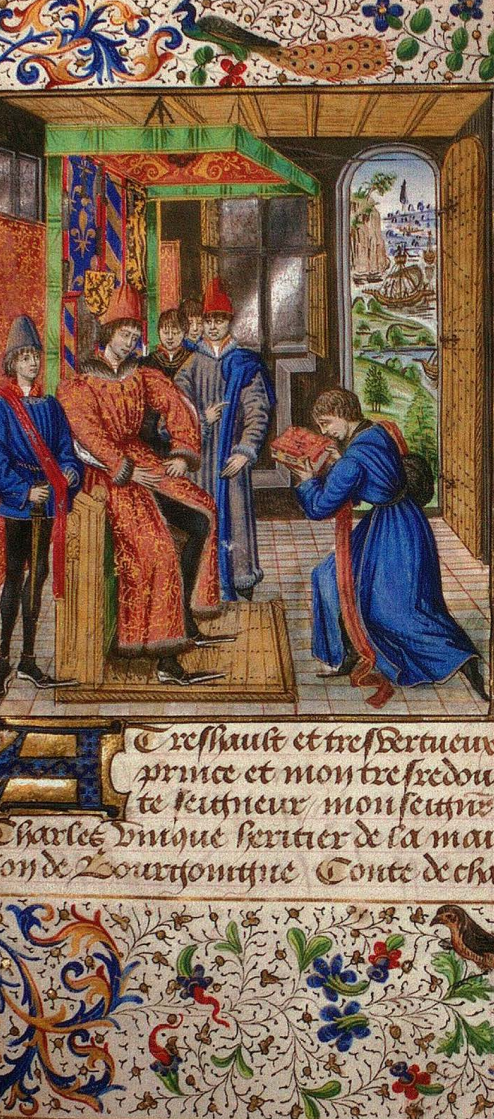 A Treshault et tresvertueux
prince et mon tresredou
te seigneur monseignr
Charles unique heritier de la mai
son de Bourgoingne Conte de cha